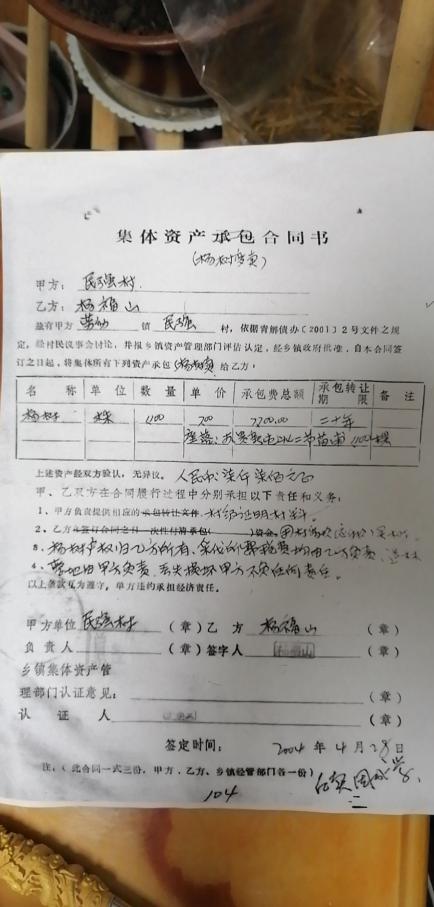 集体资产承包合同书
(杨树变卖)
甲方: 民强村
乙方: 杨福山
兹有甲方 镇 民强 村,依据青解债办〔2001〕2号文件之规
定,经村民议事会讨论,并报乡镇资产管理部门评估认定,经乡镇政府批准,自本合同签
订之日起,将集体所有下列资产承包 给乙方:
名称 单位 数量 单价 承包费总额 承包转让期限 备注
杨树 株 1100 700 7700.00 二十年
1100棵
上述资产经双方验认,无异议。 人民币:柒仟柒佰元正
甲、乙双方在合同履行过程中分别承担以下责任和义务:
1、甲方负责提供相应的承包转让文件 村经证明材料。
2、乙方从签订合同之日一次性付清承包( )资金,
3、杨树产权归乙方所有,采伐的一切税费均由乙方负责,
4、 地由甲方负责,丢失损坏甲方不负任何责任。
以上条款互为遵守,单方违约承担经济责任。
甲方单位 民强村 (章) 乙方 杨福山 (章)
负责人 (章) 签字人 杨福山 (章)
乡镇集体资产管
理部门认证意见: (章)
认证人 (章)
签定时间: 2004 年 4 月 28 日
注:(此合同一式三份,甲方、乙方、乡镇经管部门各一份)
104